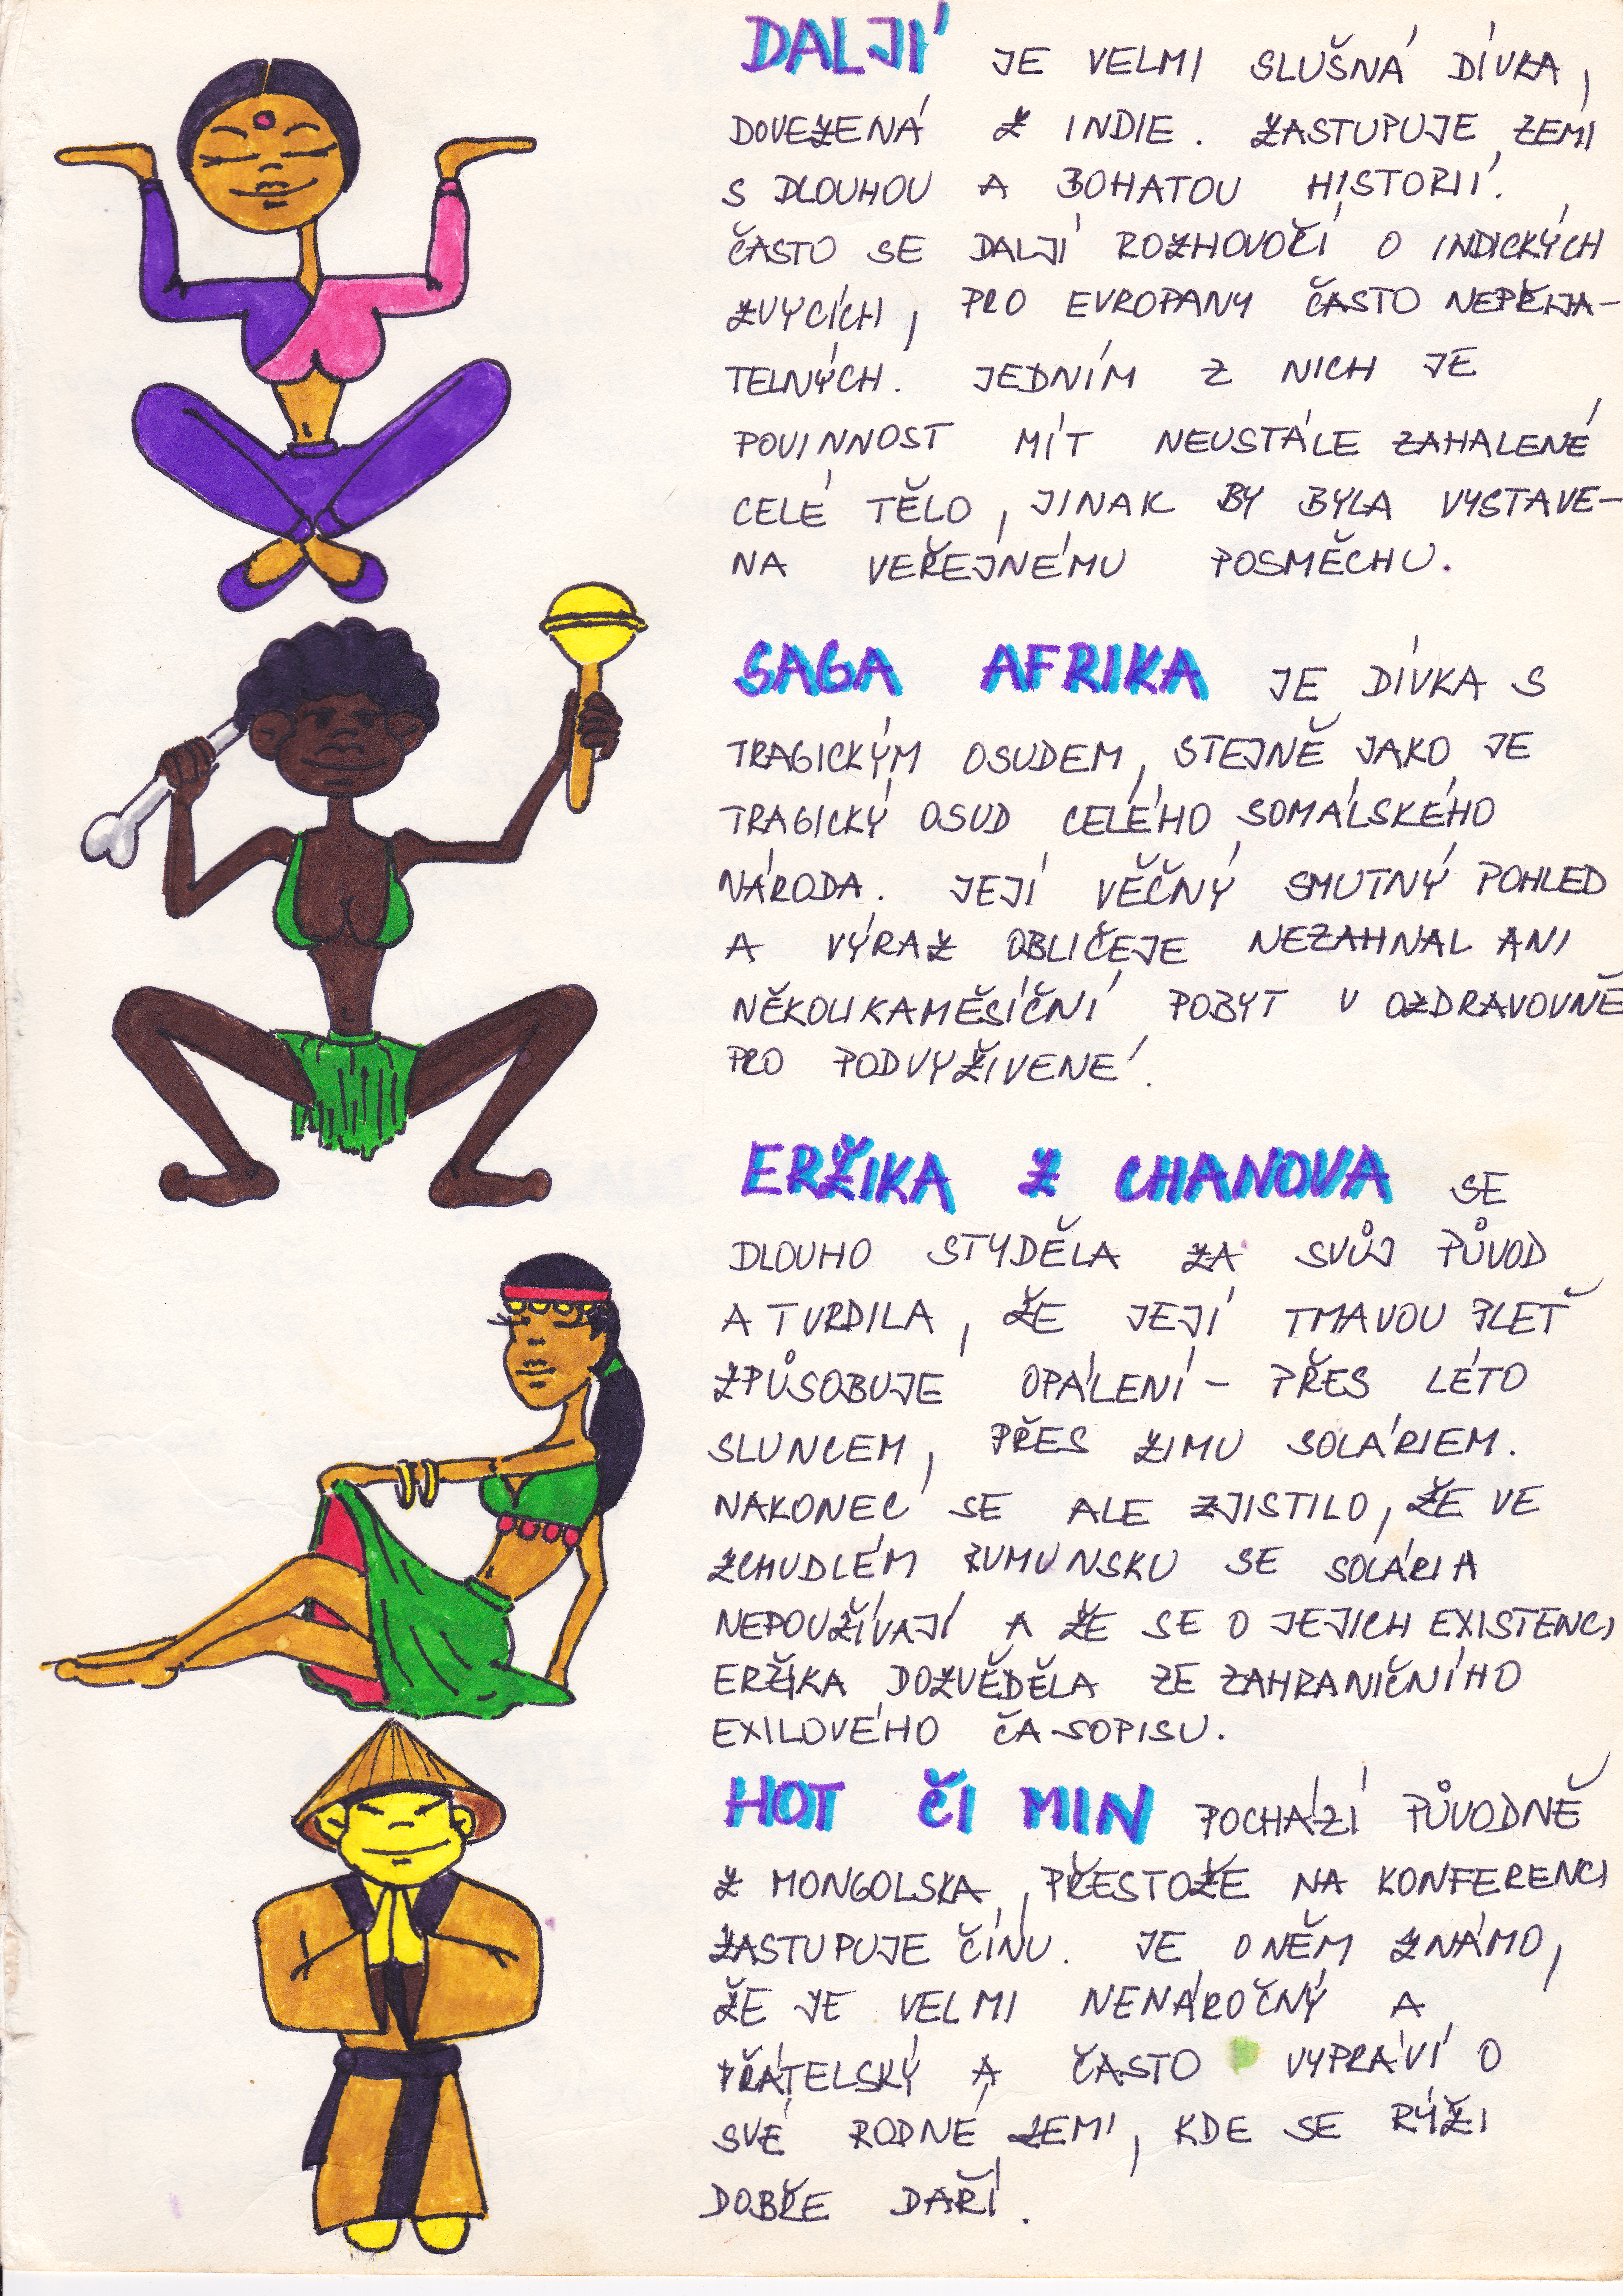 DALJÍ JE VELMI SLUŠNÁ DÍVKA,
DOVEZENÁ Z INDIE. ZASTUPUJE ZEMI
S DLOUHOU A BOHATOU HISTORIÍ.
ČASTO SE DALJÍ ROZHOVOČÍ O INDICKÝCH
ZVYCÍCH, PRO EVROPANY ČASTO NEPŘIJA-
TELNÝCH. JEDNÍM Z NICH JE
POVINNOST MÍT NEUSTÁLE ZAHALENÉ
CELÉ TĚLO, JINAK BY BYLA VYSTAVE-
NA VEŘEJNÉMU POSMĚCHU.
SAGA AFRIKA JE DÍVKA S
TRAGICKÝM OSUDEM, STEJNĚ JAKO JE
TRAGICKÝ OSUD CELÉHO SOMÁLSKÉHO
NÁRODA. JEJÍ VĚČNÝ SMUTNÝ POHLED
A VÝRAZ OBLIČEJE NEZAHNAL ANI
NĚKOLIKAMĚSÍČNÍ POBYT V OZDRAVOVNĚ
PRO PODVYŽIVENÉ.
ERŽIKA Z CHANOVA SE
DLOUHO STYDĚLA ZA SVŮJ PŮVOD
A TVRDILA, ŽE JEJÍ TMAVOU PLEŤ
ZPŮSOBUJE OPÁLENÍ - PŘES LÉTO
SLUNCEM, PŘES ZIMU SOLÁRIEM.
NAKONEC SE ALE ZJISTILO, ŽE VE
ZCHUDLÉM RUMUNSKU SE SOLÁRIA
NEPOUŽÍVAJÍ A ŽE SE O JEJICH EXISTENCI
ERŽIKA DOZVĚDĚLA ZE ZAHRANIČNÍHO
EXILOVÉHO ČASOPISU.
HOT ČI MIN POCHÁZÍ PŮVODNĚ
Z MONGOLSKA, PŘESTOŽE NA KONFERENCI
ZASTUPUJE ČÍNU. JE O NĚM ZNÁMO,
ŽE JE VELMI NENÁROČNÝ A
PŘÁTELSKÝ A ČASTO VYPRÁVÍ O
SVÉ RODNÉ ZEMI, KDE SE RÝŽI
DOBŘE DAŘÍ.